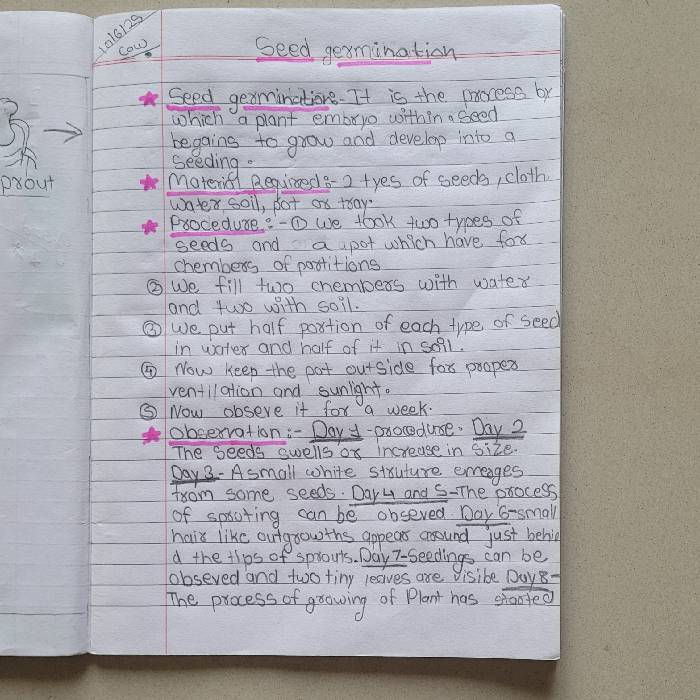 10/6/25
Cow.
Seed germination
prout
★ Seed germination:- It is the process by
which a plant embryo within a seed
begains to grow and develop into a
seeding.
★ Material Required:- 2 tyes of seeds, cloth.
water, soil, pot or tray.
★ Procedure:- ① We took two types of
seeds and a pot which have for
chembers of partitions
② We fill two chembers with water
and two with soil.
③ We put half portion of each type of seed
in water and half of it in soil.
④ Now keep the pot outside for proper
ventillation and sunlight.
⑤ Now obseve it for a week.
★ Observation:- Day 1 - procedure. Day 2
The Seeds swells or increase in size.
Day 3 - A small white struture emerges
from some seeds. Day 4 and 5 - The process
of sprouting can be obseved Day 6 - small
hair like outgrowths appear around just behin
d the tips of sprouts. Day 7 - Seedings can be
obseved and two tiny leaves are visibe Day 8 -
The process of growing of Plant has started